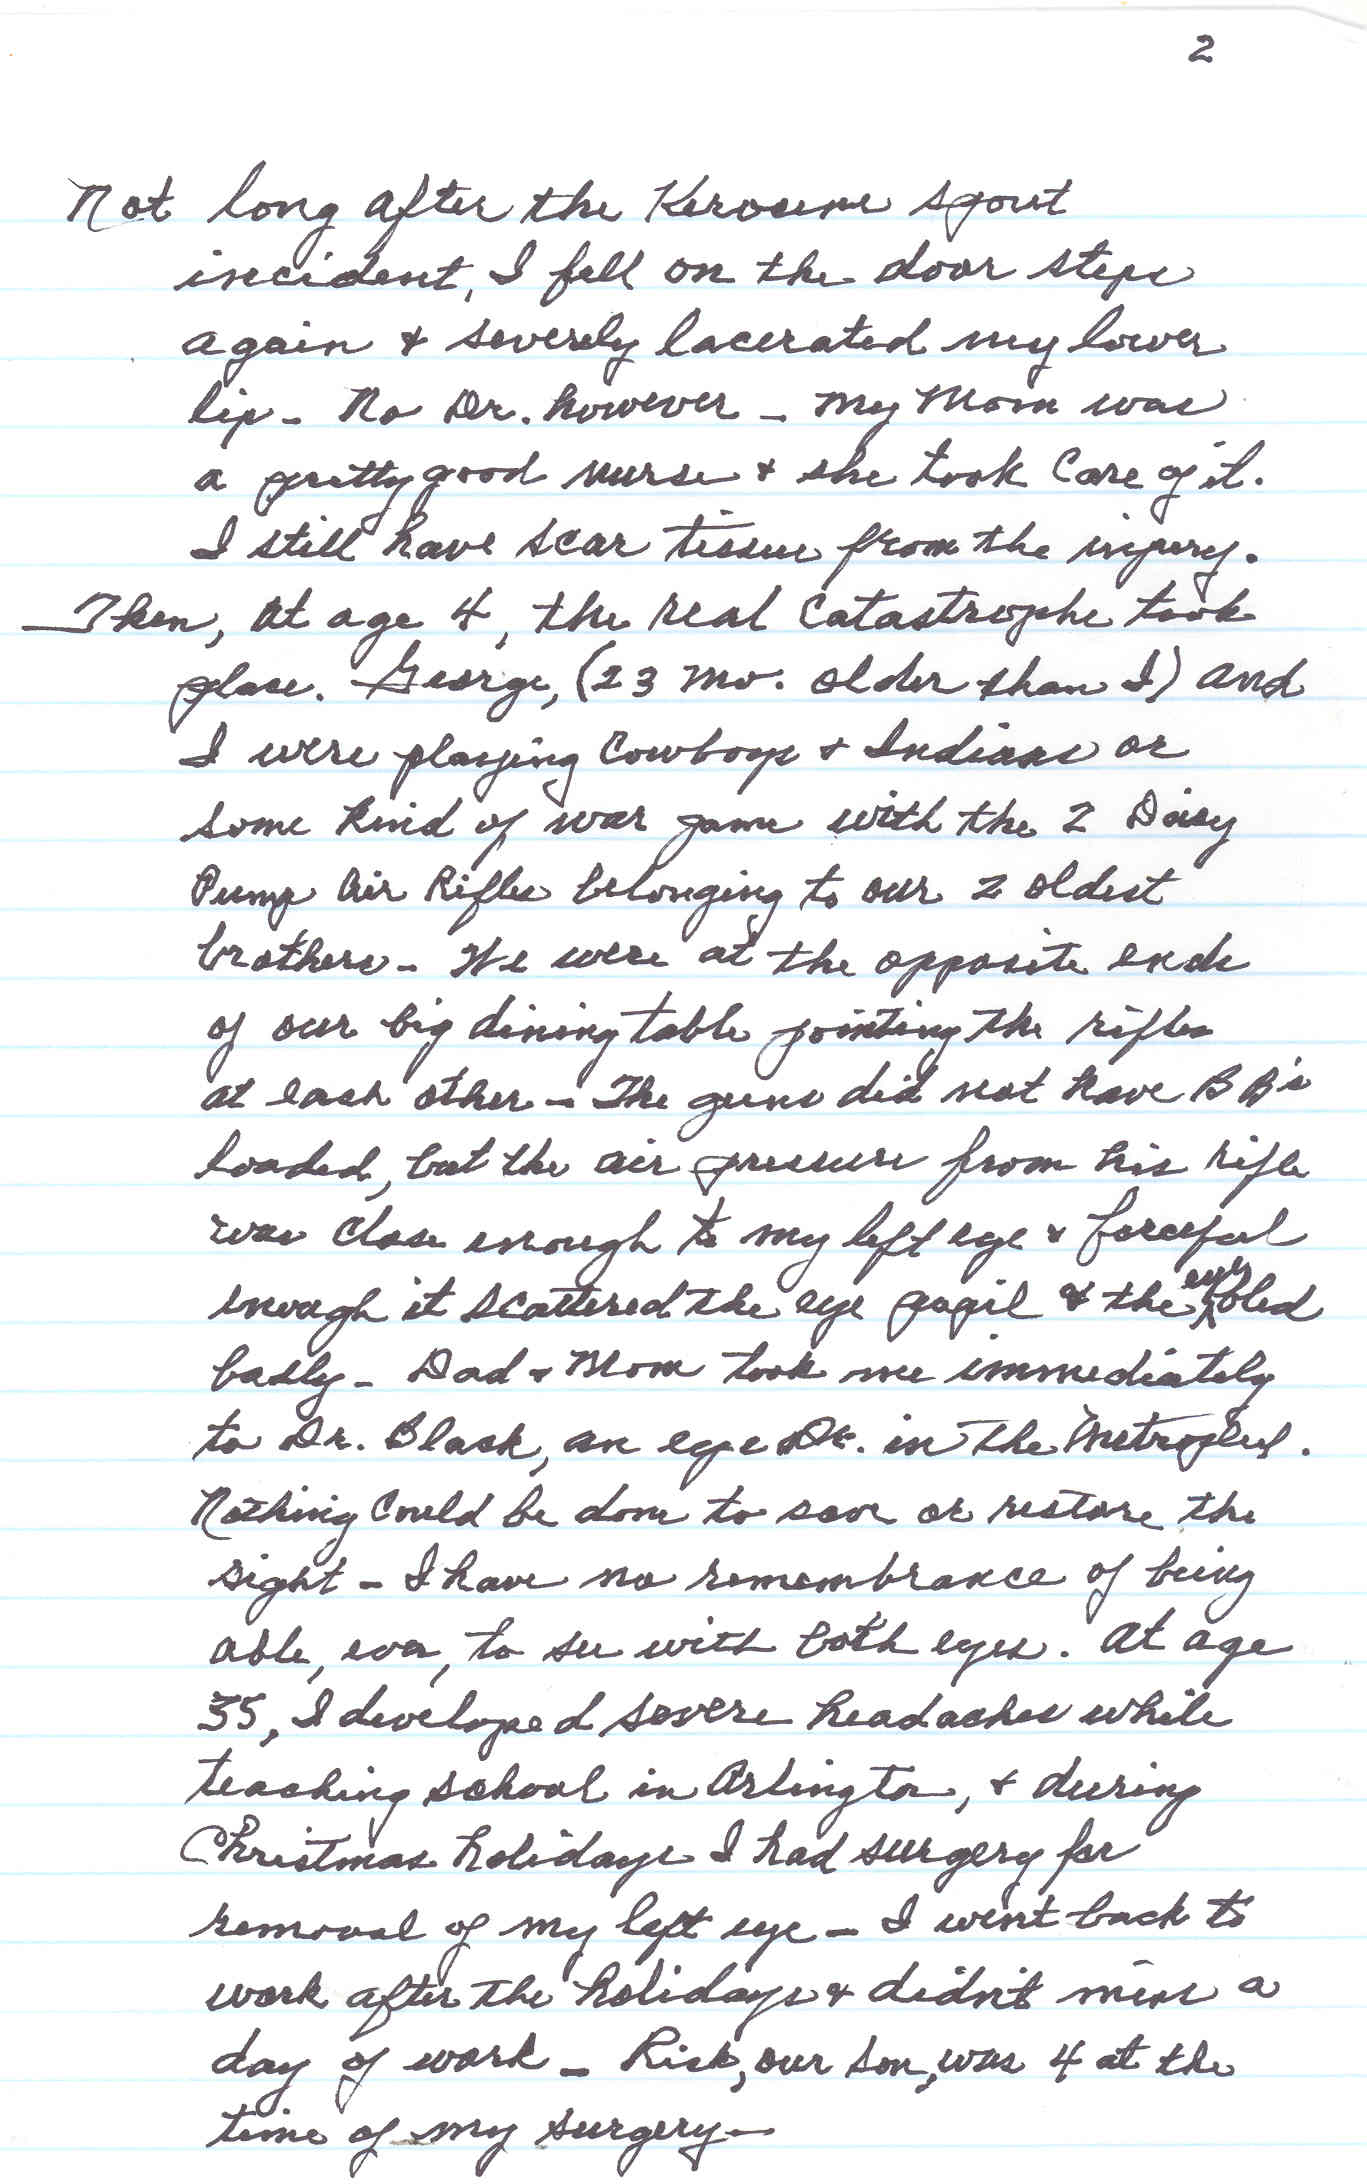 2
Not long after the Kerosene spout
incident, I fell on the door steps
again & severely lacerated my lower
lip - No Dr. however - My Mom was
a pretty good nurse & she took care of it.
I still have scar tissue from the injury.
Then, at age 4, the real catastrophe took
place. George, (23 mo. older than I) and
I were playing Cowboys & Indians or
some kind of war game with the 2 Daisy
Pump Air Rifles belonging to our 2 oldest
brothers - We were at the opposite ends
of our big dining table pointing the rifles
at each other - The guns did not have BB's
loaded, but the air pressure from his rifle
was close enough to my left eye & forceful
enough it scattered the eye pupil & the eye bled
badly - Dad & Mom took me immediately
to Dr. Black, an eye Dr. in the Metroplex.
Nothing could be done to save or restore the
sight - I have no remembrance of being
able, ever, to see with both eyes. At age
35, I developed severe headaches while
teaching school in Arlington, & during
Christmas holidays I had surgery for
removal of my left eye - I went back to
work after the holidays & didn't miss a
day of work - Rick, our son, was 4 at the
time of my surgery -